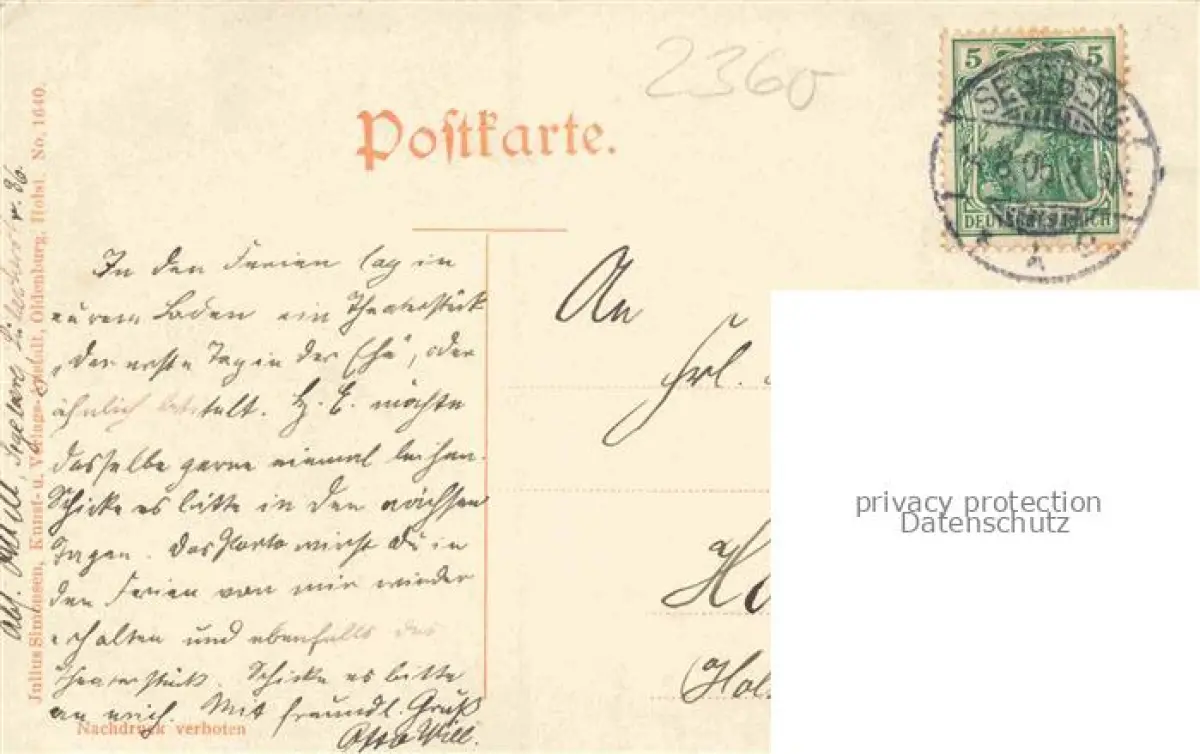 2360
Postkarte.
5 5
SEGEBERG
DEUTSCHES REICH
In den Ferien lag in
eurem Laden ein Theaterstück
„Der erste Tag in der Ehe“, oder
ähnlich betitelt. H. E. möchte
dasselbe gerne einmal leihen.
Schicke es bitte in den nächsten
Tagen. Das Porto wirst Du in
den Ferien von mir wieder
erhalten und ebenfalls das
Theaterstück. Schicke es bitte
an mich. Mit freundl. Gruß
Otto Will.
An
Frl.
H
Hol
Abs. Will, Segeberg, 86.
Julius Simonsen, Kunst- u. Verlags-Anstalt, Oldenburg, Holst. No. 1640.
Nachdruck verboten
privacy protection
Datenschutz